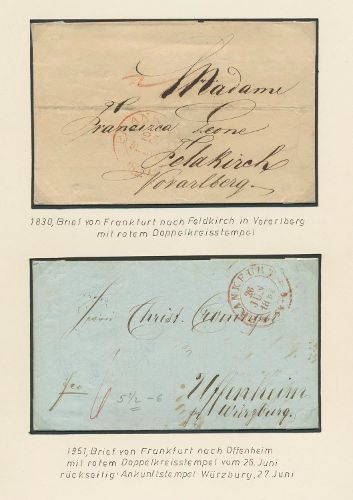 Madame
Francisca Leone
Feldkirch
Vorarlberg.
1830, Brief von Frankfurt nach Feldkirch in Vorarlberg
mit rotem Doppelkreisstempel
FRANKFURT
26
JUN
Herrn Christ.
Uffenheim
Würzburg.
5½ - 6
1851, Brief von Frankfurt nach Offenheim
mit rotem Doppelkreisstempel vom 26. Juni
rückseitig: Ankunftstempel Würzburg, 27. Juni